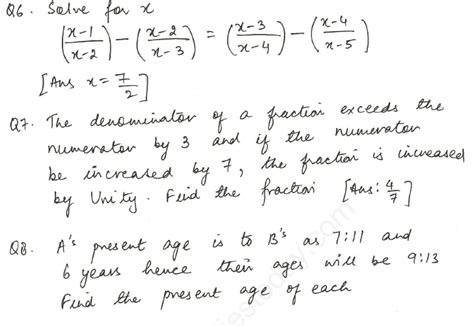 Q6. Solve for x
(x-1/x-2) - (x-2/x-3) = (x-3/x-4) - (x-4/x-5)
[Ans x = 7/2]
Q7. The denominator of a fraction exceeds the
numerator by 3 and if the numerator
be increased by 7, the fraction is increased
by Unity. Find the fraction [Ans: 4/7]
Q8. A's present age is to B's as 7:11 and
6 years hence their ages will be 9:13
Find the present age of each